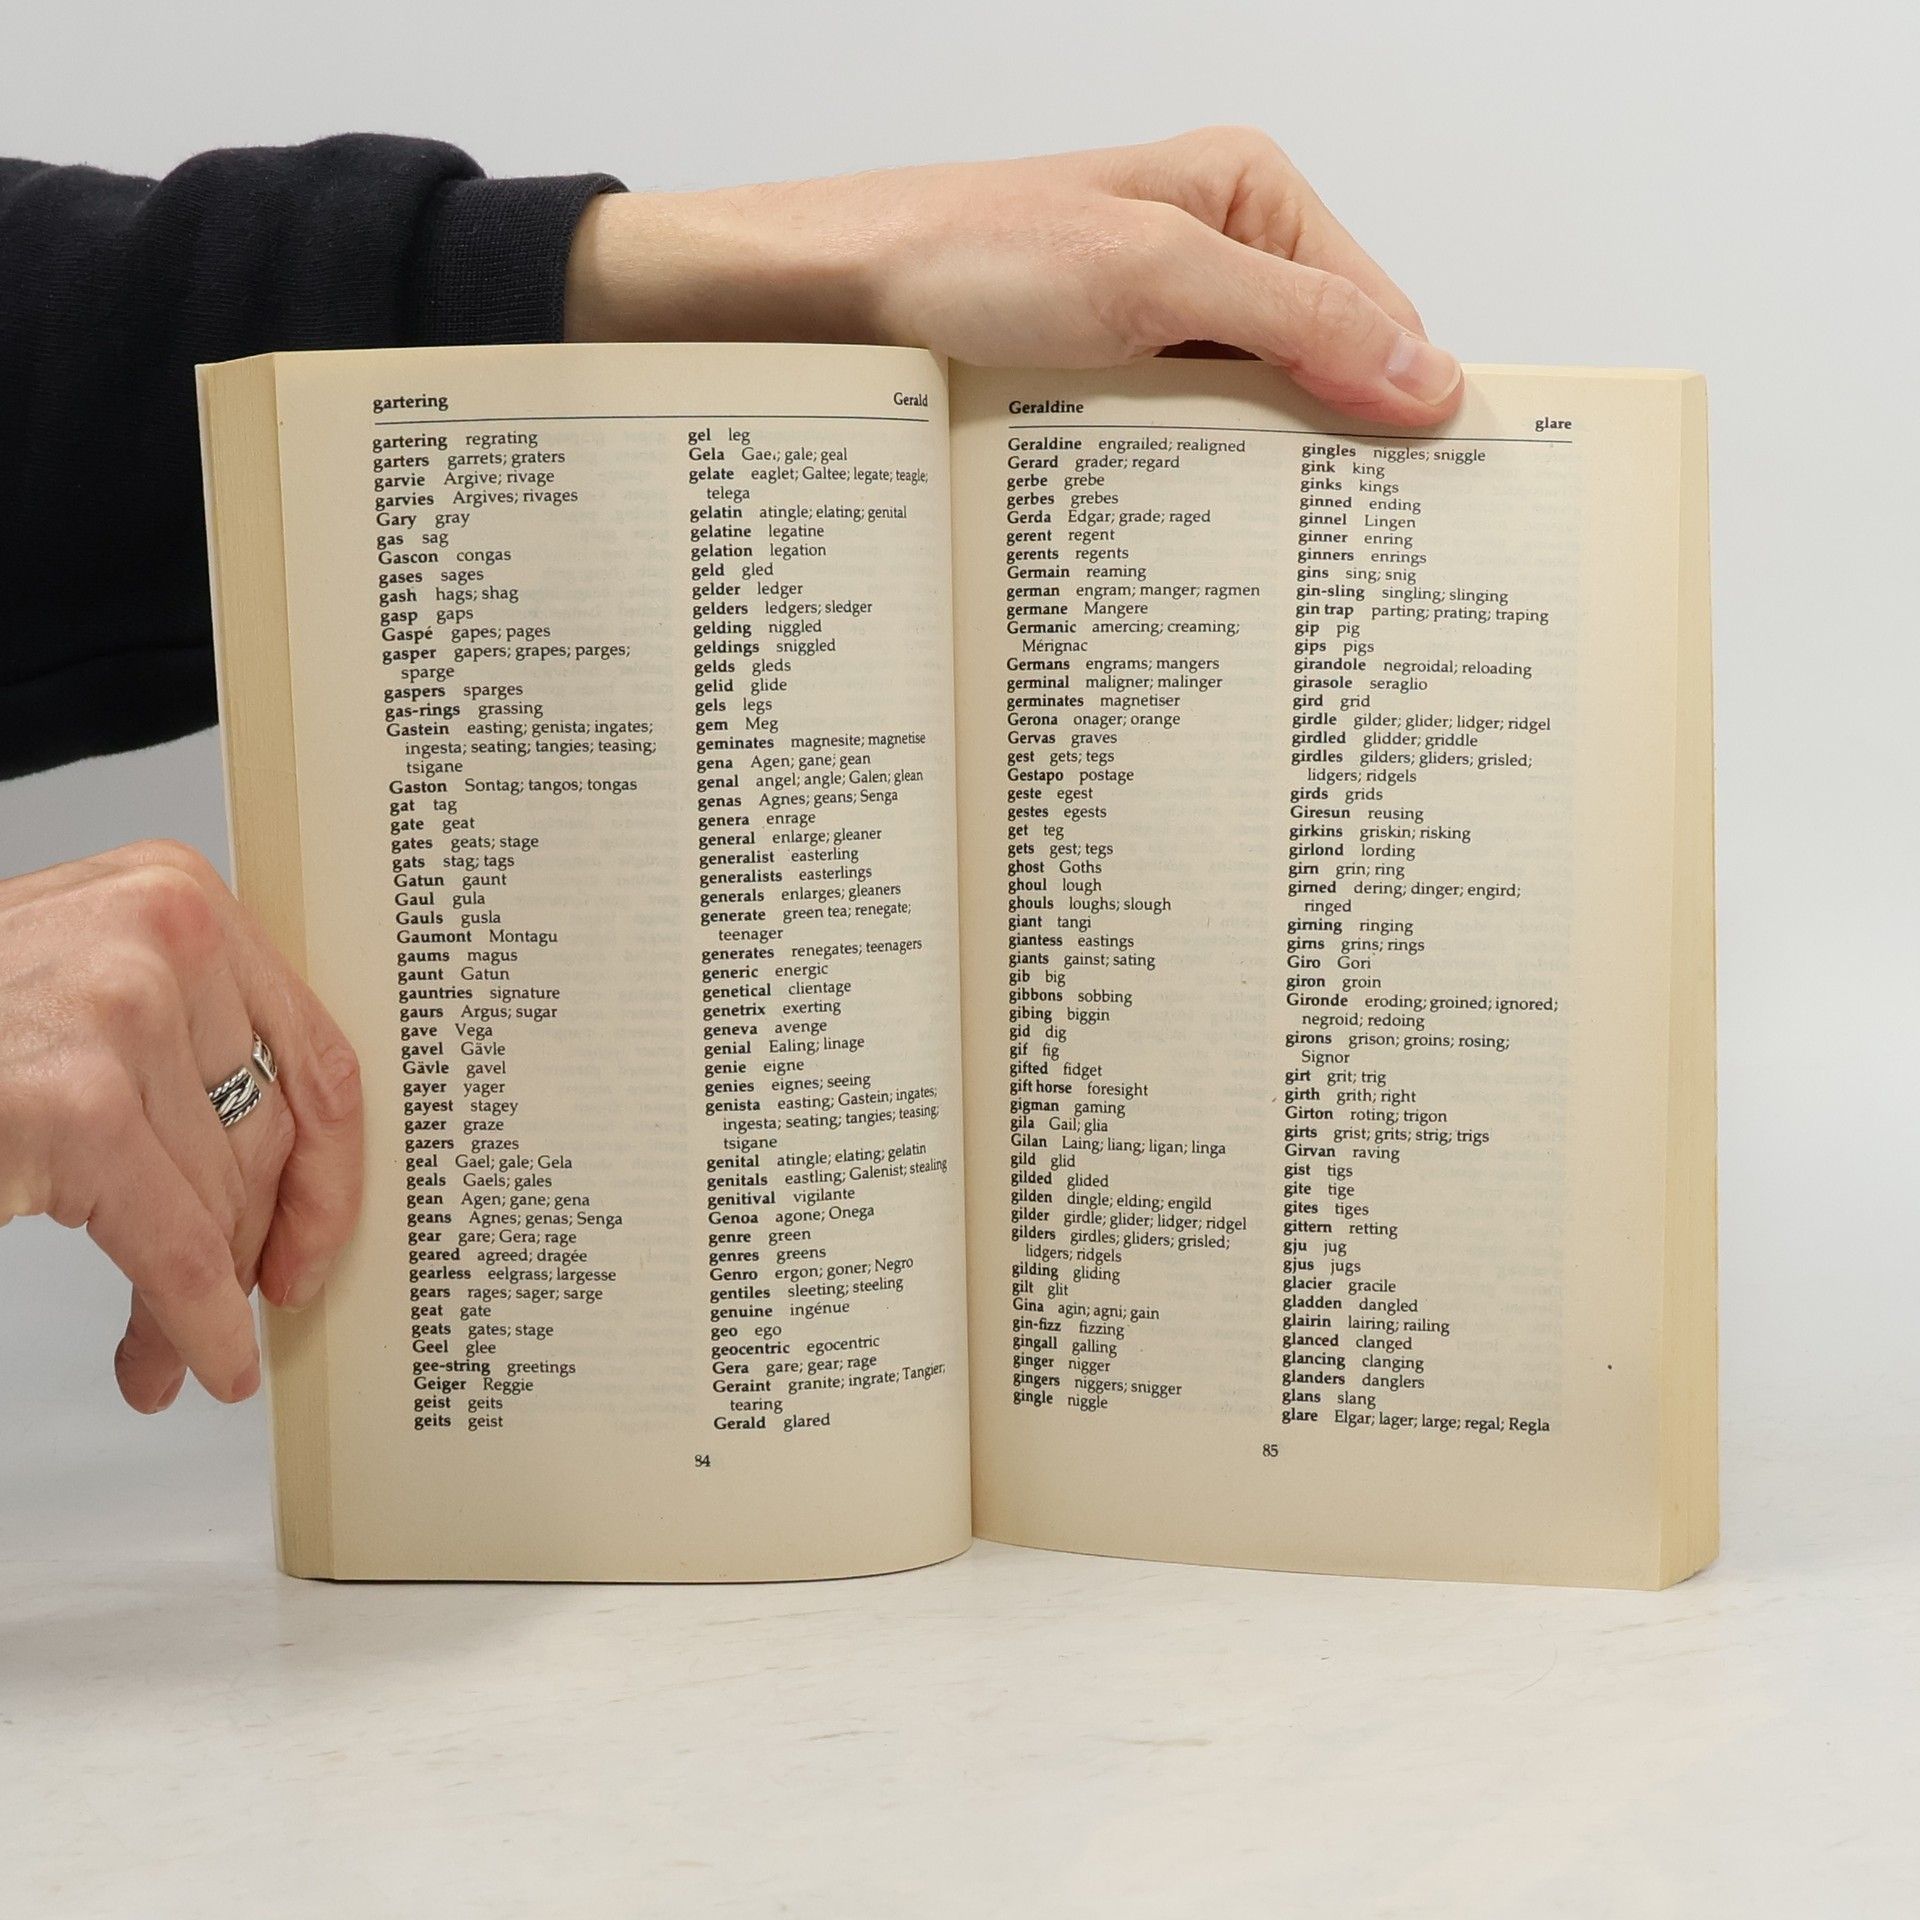 gartering Gerald
gartering regrating
garters garrets; graters
garvie Argive; rivage
garvies Argives; rivages
Gary gray
gas sag
Gascon congas
gases sages
gash hags; shag
gasp gaps
Gaspé gapes; pages
gasper gapers; grapes; parges;
sparge
gaspers sparges
gas-rings grassing
Gastein easting; genista; ingates;
ingesta; seating; tangies; teasing;
tsigane
Gaston Sontag; tangos; tongas
gat tag
gate geat
gates geats; stage
gats stag; tags
Gatun gaunt
Gaul gula
Gauls gusla
Gaumont Montagu
gaums magus
gaunt Gatun
gauntries signature
gaurs Argus; sugar
gave Vega
gavel Gävle
Gävle gavel
gayer yager
gayest stagey
gazer graze
gazers grazes
geal Gael; gale; Gela
geals Gaels; gales
gean Agen; gane; gena
geans Agnes; genas; Senga
gear gare; Gera; rage
geared agreed; dragée
gearless eelgrass; largesse
gears rages; sager; sarge
geat gate
geats gates; stage
Geel glee
gee-string greetings
Geiger Reggie
geist geits
geits geist
gel leg
Gela Gael; gale; geal
gelate eaglet; Galtee; legate; teagle;
telega
gelatin atingle; elating; genital
gelatine legatine
gelation legation
geld gled
gelder ledger
gelders ledgers; sledger
gelding niggled
geldings sniggled
gelds gleds
gelid glide
gels legs
gem Meg
geminates magnesite; magnetise
gena Agen; gane; gean
genal angel; angle; Galen; glean
genas Agnes; geans; Senga
genera enrage
general enlarge; gleaner
generalist easterling
generalists easterlings
generals enlarges; gleaners
generate green tea; renegate;
teenager
generates renegates; teenagers
generic energic
genetical clientage
genetrix exerting
geneva avenge
genial Ealing; linage
genie eigne
genies eignes; seeing
genista easting; Gastein; ingates;
ingesta; seating; tangies; teasing;
tsigane
genital atingle; elating; gelatin
genitals eastling; Galenist; stealing
genitival vigilante
Genoa agone; Onega
genre green
genres greens
Genro ergon; goner; Negro
gentiles sleeting; steeling
genuine ingénue
geo ego
geocentric egocentric
Gera gare; gear; rage
Geraint granite; ingrate; Tangier;
tearing
Gerald glared
84
Geraldine glare
Geraldine engrailed; realigned
Gerard grader; regard
gerbe grebe
gerbes grebes
Gerda Edgar; grade; raged
gerent regent
gerents regents
Germain reaming
german engram; manger; ragmen
germane Mangere
Germanic amercing; creaming;
Mérignac
Germans engrams; mangers
germinal maligner; malinger
germinates magnetiser
Gerona onager; orange
Gervas graves
gest gets; tegs
Gestapo postage
geste egest
gestes egests
get teg
gets gest; tegs
ghost Goths
ghoul lough
ghouls loughs; slough
giant tangi
giantess eastings
giants gainst; sating
gib big
gibbons sobbing
gibing biggin
gid dig
gif fig
gifted fidget
gift horse foresight
gigman gaming
gila Gail; glia
Gilan Laing; liang; ligan; linga
gild glid
gilded glided
gilden dingle; elding; engild
gilder girdle; glider; lidger; ridgel
gilders girdles; gliders; grisled;
lidgers; ridgels
gilding gliding
gilt glit
Gina agin; agni; gain
gin-fizz fizzing
gingall galling
ginger nigger
gingers niggers; snigger
gingle niggle
gingles niggles; sniggle
gink king
ginks kings
ginned ending
ginnel Lingen
ginner enring
ginners enrings
gins sing; snig
gin-sling singling; slinging
gin trap parting; prating; traping
gip pig
gips pigs
girandole negroidal; reloading
girasole seraglio
gird grid
girdle gilder; glider; lidger; ridgel
girdled glidder; griddle
girdles gilders; gliders; grisled;
lidgers; ridgels
girds grids
Giresun reusing
girkins griskin; risking
girlond lording
girn grin; ring
girned dering; dinger; engird;
ringed
girning ringing
girns grins; rings
Giro Gori
giron groin
Gironde eroding; groined; ignored;
negroid; redoing
girons grison; groins; rosing;
Signor
girt grit; trig
girth grith; right
Girton roting; trigon
girts grist; grits; strig; trigs
Girvan raving
gist tigs
gite tige
gites tiges
gittern retting
gju jug
gjus jugs
glacier gracile
gladden dangled
glairin lairing; railing
glanced clanged
glancing clanging
glanders danglers
glans slang
glare Elgar; lager; large; regal; Regla
85